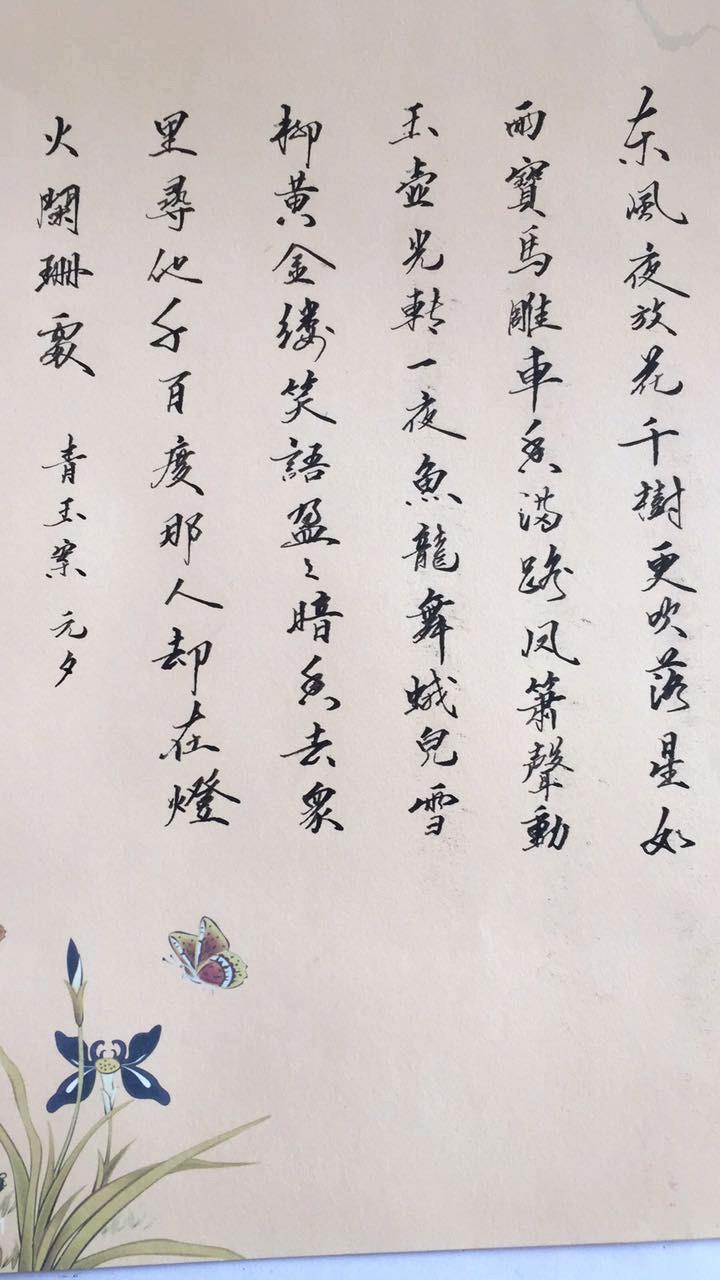 东風夜放花千樹更吹落星如
雨寶馬雕車香満路凤簫聲動
玉壺光轉一夜魚龍舞蛾兒雪
柳黄金缕笑語盈々暗香去衆
里尋他千百度那人却在燈
火闌珊處 青玉案 元夕